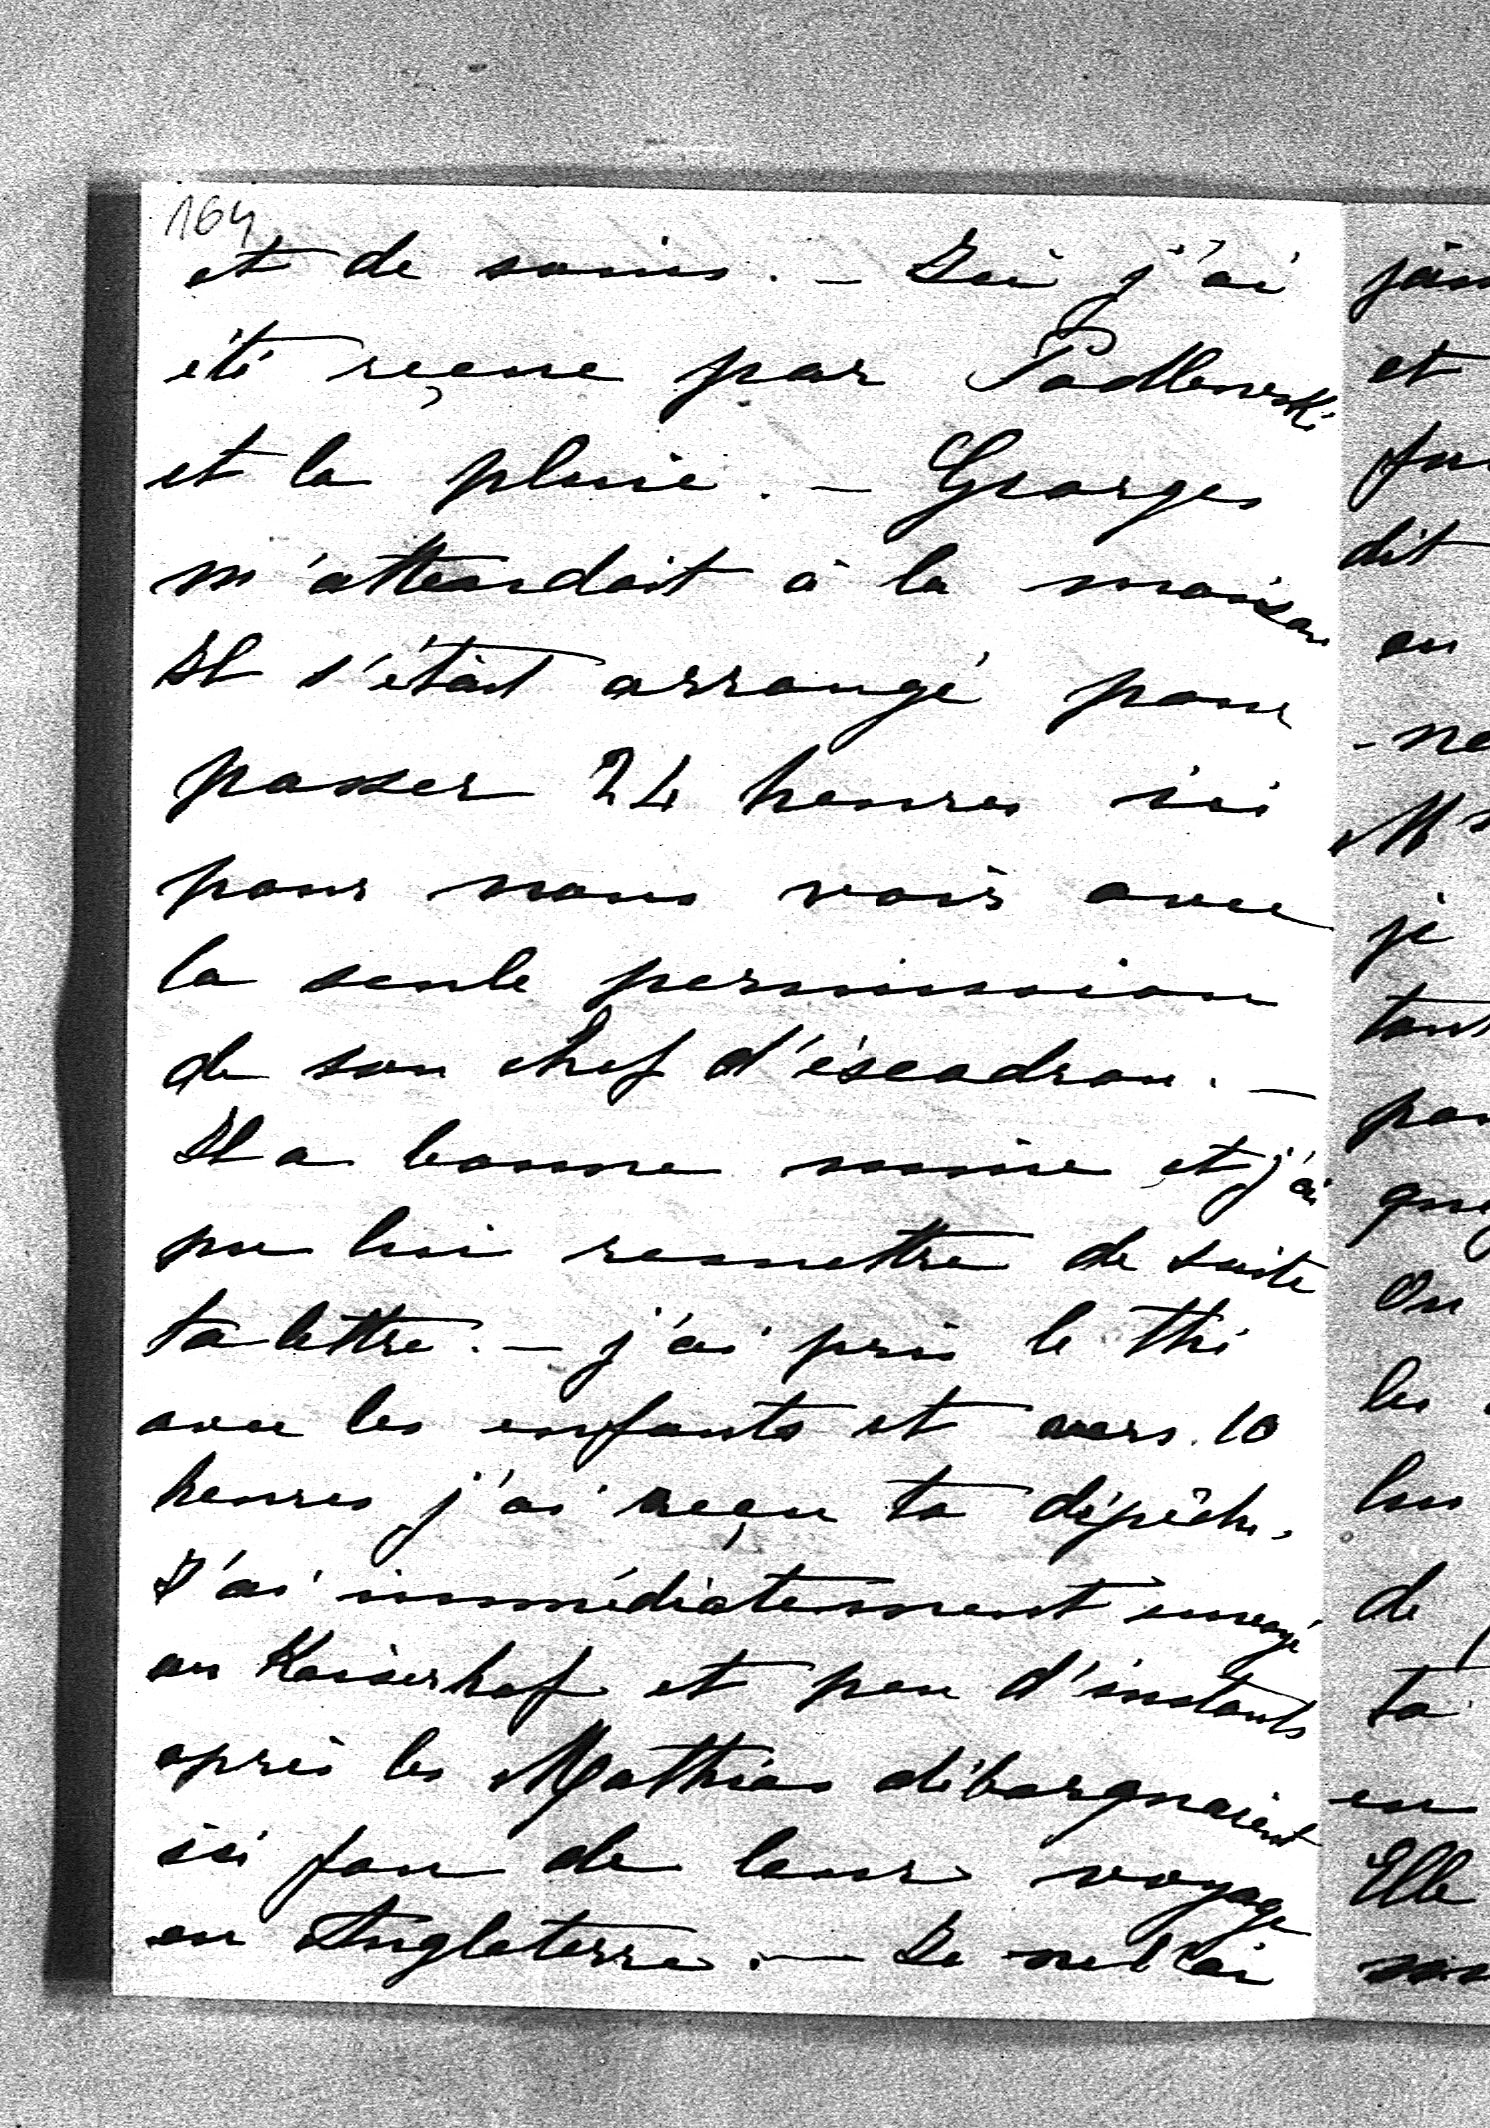 164
et de soins. – Ici j'ai
été reçue par Podlewski
et la pluie. – Georges
m'attendait à la maison
Il s'était arrangé pour
passer 24 heures ici
pour nous voir avec
la seule permission
de son chef d'éscadron. –
Il a bonne mine et j'ai
pu lui remettre de suite
ta lettre. – j'ai pris le thé
avec les enfants et vers 10
heures j'ai reçu ta dépêche.
J'ai immédiatement envoyé
au Kaiserhof et peu d'instants
après les Mathias débarquaient
ici fou de leur voyage
en Angleterre. – Je ne l'ai
et
dit
en
je
On
les
de
ta
en
Elle